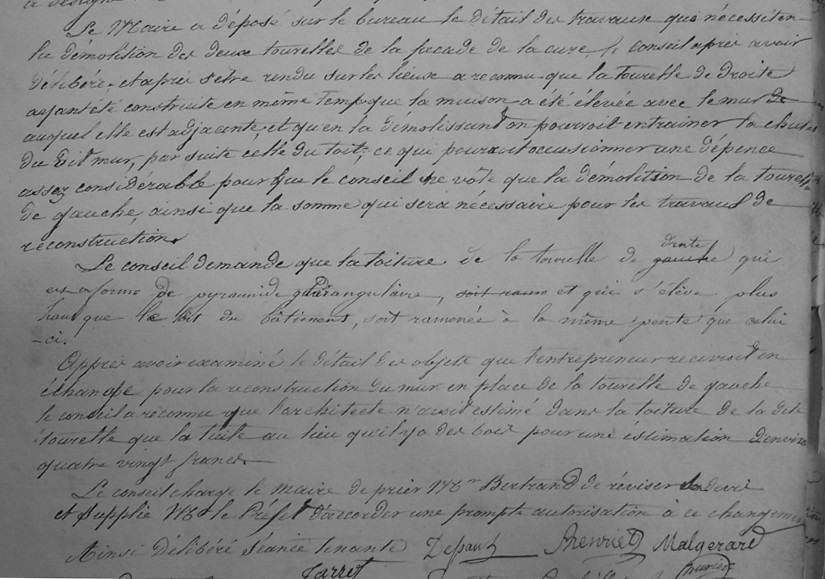 Le Maire a déposé sur le bureau le détail des travaux que nécessiten
la démolition des deux tourelles de la façade de la cure, le conseil après avoir
délibéré, et après s'etre rendu sur les lieux a reconnu que la tourelle de droite
ayant été construite en même temps que la maison a été élevée avec le mur de
auquel elle est adjacente, et qu'en la démolissant on pourroit entrainer la chute
du dit mur, par suite celle du toit, ce qui pourrait occasionner une dépence
assez considérable pour que le conseil ne vote que la démolition de la tourelle
de gauche, ainsi que la somme qui sera nécessaire pour les travaux de
reconstruction.
Le conseil demande que la toiture de la tourelle de gauche droite qui
en forme de pyramide quadrangulaire, et qui s'élève plus
haut que le toit du bâtiment, soit ramenée à la même pente que celui
-ci.
Après avoir examiné le détail des objets que l'entrepreneur recevroit en
échange pour la reconstruction du mur en place de la tourelle de gauche
le conseil a reconnu que l'architecte n'avoit estimé dans la toiture de la dite
tourelle que la tuile au lieu qu'il y a des bois pour une estimation d'environ
quatre vingt francs.
Le conseil charge le maire de prier Mr Bertrand de réviser devis
et supplie Mr le Préfet d'accorder une prompte autorisation à ce changement
Ainsi délibéré séance tenante Henriet Malgerard
Jarret